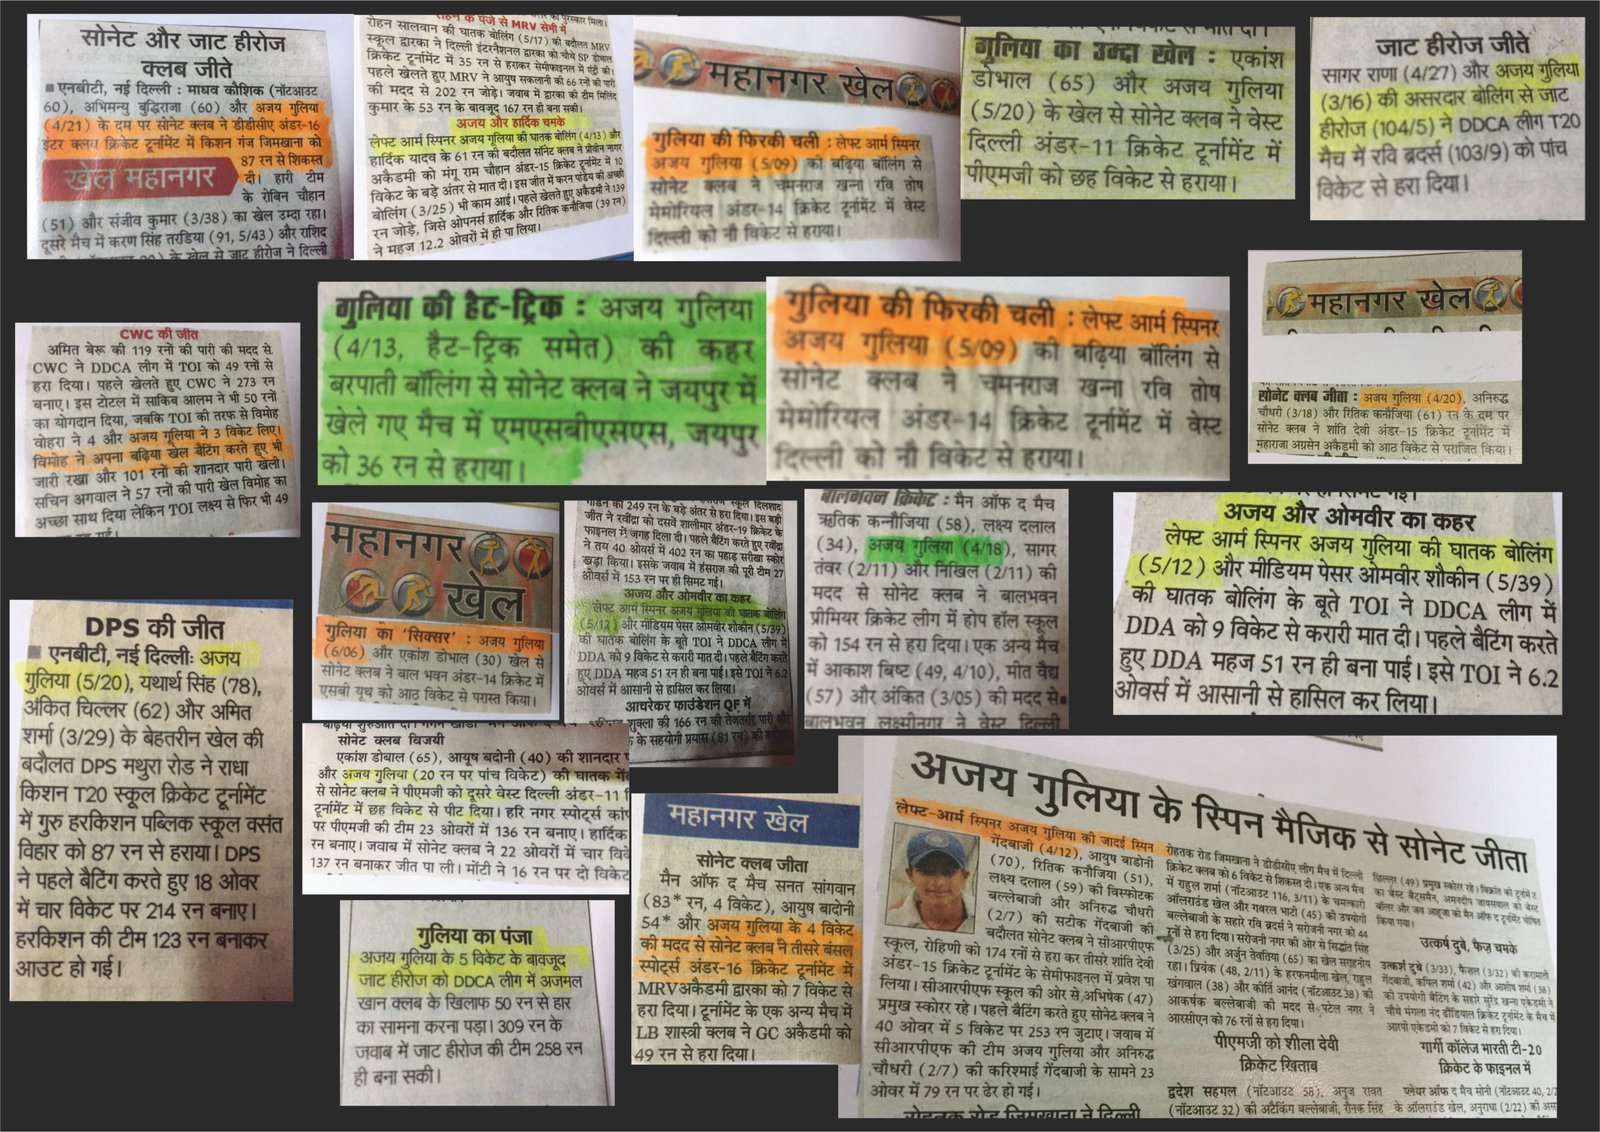 सोनेट और जाट हीरोज
क्लब जीते
■ एनबीटी, नई दिल्ली : माधव कौशिक (नॉटआउट
60), अभिमन्यु बुद्धिराजा (60) और अजय गुलिया
(4/21) के दम पर सोनेट क्लब ने डीडीसीए अंडर-16
इंटर क्लब क्रिकेट टूर्नामेंट में किशन गंज जिमखाना को
खेल महानगर
87 रन से शिकस्त
दी। हारी टीम
के रोबिन चौहान
(51) और संजीव कुमार (3/38) का खेल उम्दा रहा।
दूसरे मैच में करण सिंह तरडिया (91, 5/43) और राशिद
के खेल से जाट हीरोज ने दिल्ली
के पंजे से MRV सेमी में
रोहन सालवान की घातक बोलिंग (5/17) की बदौलत MRV
स्कूल द्वारका ने दिल्ली इंटरनैशनल द्वारका को चौथे SP डोभाल
क्रिकेट टूर्नामेंट में 35 रन से हराकर सेमीफाइनल में एंट्री की।
पहले खेलते हुए MRV ने आयुष सकलानी की 66 रनों की पारी
की मदद से 202 रन जोड़े। जवाब में द्वारका की टीम मिलिंद
कुमार के 53 रन के बावजूद 167 रन ही बना सकी।
अजय और हार्दिक चमके
लेफ्ट आर्म स्पिनर अजय गूलिया की घातक बोलिंग (4/13) और
हार्दिक यादव के 61 रन की बदौलत सॉनेट क्लब ने प्रवीन नागर
अकैडमी को मंगू राम चौहान अंडर-15 क्रिकेट टूर्नामेंट में 10
विकेट के बड़े अंतर से मात दी। इस जीत में करन पांडेय की अच्छी
बोलिंग (3/25) भी काम आई। पहले खेलते हुए अकैडमी ने 139
रन जोड़े, जिसे ओपनर्स हार्दिक और रितिक कनौजिया (39 रन)
ने महज 12.2 ओवरों में ही पा लिया।
महानगर खेल
गुलिया की फिरकी चली : लेफ्ट आर्म स्पिनर
अजय गुलिया (5/09) की बढ़िया बॉलिंग से
सोनेट क्लब ने चमनराज खन्ना रवि तोष
मेमोरियल अंडर-14 क्रिकेट टूर्नामेंट में वेस्ट
दिल्ली को नौ विकेट से हराया।
गुलिया का उम्दा खेल : एकांश
डोभाल (65) और अजय गुलिया
(5/20) के खेल से सोनेट क्लब ने वेस्ट
दिल्ली अंडर-11 क्रिकेट टूर्नामेंट में
पीएमजी को छह विकेट से हराया।
जाट हीरोज जीते
सागर राणा (4/27) और अजय गुलिया
(3/16) की असरदार बोलिंग से जाट
हीरोज (104/5) ने DDCA लीग T20
मैच में रवि ब्रदर्स (103/9) को पांच
विकेट से हरा दिया।
CWC की जीत
अमित बेरू की 119 रनों की पारी की मदद से
CWC ने DDCA लीग में TOI को 49 रनों से
हरा दिया। पहले खेलते हुए CWC ने 273 रन
बनाए। इस टोटल में साकिब आलम ने भी 50 रनों
का योगदान दिया, जबकि TOI की तरफ से विमोह
वोहरा ने 4 और अजय गुलिया ने 3 विकेट लिए।
विमोह ने अपना बढ़िया खेल बैटिंग करते हुए भी
जारी रखा और 101 रनों की शानदार पारी खेली।
सचिन अगवाल ने 57 रनों की पारी खेल विमोह का
अच्छा साथ दिया लेकिन TOI लक्ष्य से फिर भी 49
गुलिया की हैट-ट्रिक : अजय गुलिया
(4/13, हैट-ट्रिक समेत) की कहर
बरपाती बॉलिंग से सोनेट क्लब ने जयपुर में
खेले गए मैच में एमएसबीएसएस, जयपुर
को 36 रन से हराया।
गुलिया की फिरकी चली : लेफ्ट आर्म स्पिनर
अजय गुलिया (5/09) की बढ़िया बॉलिंग से
सोनेट क्लब ने चमनराज खन्ना रवि तोष
मेमोरियल अंडर-14 क्रिकेट टूर्नामेंट में वेस्ट
दिल्ली को नौ विकेट से हराया।
महानगर खेल
सोनेट क्लब जीता : अजय गुलिया (4/20), अनिरुद्ध
चौधरी (3/18) और रितिक कनौजिया (61) रन के दम पर
सोनेट क्लब ने शांति देवी अंडर-15 क्रिकेट टूर्नामेंट में
महाराजा अग्रसेन अकैडमी को आठ विकेट से पराजित किया।
महानगर
खेल
गुलिया का 'सिक्सर' : अजय गुलिया
(6/06) और एकांश डोभाल (30) खेल से
सोनेट क्लब ने बाल भवन अंडर-14 क्रिकेट में
एसबी यूथ को आठ विकेट से परास्त किया।
गार्डन को 249 रन के बड़े अंतर से हरा दिया। इस बड़ी
जीत ने रवींद्रा को दसवें शालीमार अंडर-19 क्रिकेट के
फाइनल में जगह दिला दी। पहले बैटिंग करते हुए रवींद्रा
ने तय 40 ओवर्स में 402 रन का पहाड़ सरीखा स्कोर
खड़ा किया। इसके जवाब में हंसराज की पूरी टीम 27
ओवर्स में 153 रन पर ही सिमट गई।
अजय और ओमवीर का कहर
लेफ्ट आर्म स्पिनर अजय गुलिया की घातक बोलिंग
(5/12) और मीडियम पेसर ओमवीर शौकीन (5/39)
की घातक बोलिंग के बूते TOI ने DDCA लीग में
DDA को 9 विकेट से करारी मात दी। पहले बैटिंग करते
हुए DDA महज 51 रन ही बना पाई। इसे TOI ने 6.2
ओवर्स में आसानी से हासिल कर लिया।
आचरेकर फाउंडेशन QF में
शुक्ला की 166 रन की तेजतर्रार पारी और
के सहयोगी प्रयास (81 रन) की
बालभवन क्रिकेट : मैन ऑफ द मैच
ऋतिक कन्नौजिया (58), लक्ष्य दलाल
(34), अजय गुलिया (4/18), सागर
तंवर (2/11) और निखिल (2/11) की
मदद से सोनेट क्लब ने बालभवन
प्रीमियर क्रिकेट लीग में होप हॉल स्कूल
को 154 रन से हरा दिया। एक अन्य मैच
में आकाश बिष्ट (49, 4/10), मीत वैद्य
(57) और अंकित (3/05) की मदद से
बालभवन लक्ष्मीनगर ने वेस्ट दिल्ली
अजय और ओमवीर का कहर
लेफ्ट आर्म स्पिनर अजय गुलिया की घातक बोलिंग
(5/12) और मीडियम पेसर ओमवीर शौकीन (5/39)
की घातक बोलिंग के बूते TOI ने DDCA लीग में
DDA को 9 विकेट से करारी मात दी। पहले बैटिंग करते
हुए DDA महज 51 रन ही बना पाई। इसे TOI ने 6.2
ओवर्स में आसानी से हासिल कर लिया।
DPS की जीत
■ एनबीटी, नई दिल्ली: अजय
गुलिया (5/20), यथार्थ सिंह (78),
अंकित चिल्लर (62) और अमित
शर्मा (3/29) के बेहतरीन खेल की
बदौलत DPS मथुरा रोड ने राधा
किशन T20 स्कूल क्रिकेट टूर्नामेंट
में गुरु हरकिशन पब्लिक स्कूल वसंत
विहार को 87 रन से हराया। DPS
ने पहले बैटिंग करते हुए 18 ओवर
में चार विकेट पर 214 रन बनाए।
हरकिशन की टीम 123 रन बनाकर
आउट हो गई।
सोनेट क्लब विजयी
एकांश डोबाल (65), आयूष बदोनी (40) की शानदार
और अजय गुलिया (20 रन पर पांच विकेट) की घातक
से सोनेट क्लब ने पीएमजी को दूसरे वेस्ट दिल्ली अंडर-11
टूर्नामेंट में छह विकेट से पीट दिया। हरि नगर स्पोर्ट्स
पर पीएमजी की टीम 23 ओवरों में 136 रन बनाए। हार्दिक
रन बनाए। जवाब में सोनेट क्लब ने 22 ओवरों में चार
137 रन बनाकर जीत पा ली। मोंटी ने 16 रन पर दो विकेट
गुलिया का पंजा
अजय गुलिया के 5 विकेट के बावजूद
जाट हीरोज को DDCA लीग में अजमल
खान क्लब के खिलाफ 50 रन से हार
का सामना करना पड़ा। 309 रन के
जवाब में जाट हीरोज की टीम 258 रन
ही बना सकी।
महानगर खेल
सोनेट क्लब जीता
मैन ऑफ द मैच सनत सांगवान
(83* रन, 4 विकेट), आयुष बादोनी
54* और अजय गुलिया के 4 विकेट
की मदद से सोनेट क्लब ने तीसरे बंसल
स्पोर्ट्स अंडर-16 क्रिकेट टूर्नामेंट में
MRVअकैडमी द्वारका को 7 विकेट से
हरा दिया। टूर्नामेंट के एक अन्य मैच में
LB शास्त्री क्लब ने GC अकैडमी को
49 रन से हरा दिया।
अजय गुलिया के स्पिन मैजिक से सोनेट जीता
लेफ्ट-आर्म स्पिनर अजय गुलिया की जादुई स्पिन
गेंदबाजी (4/12), आयुष बाडोनी
(70), रितिक कनौजिया (51),
लक्ष्य दलाल (59) की विस्फोटक
बल्लेबाजी और अनिरुद्ध चौधरी
(2/7) की सटीक गेंदबाजी की
बदौलत सोनेट क्लब ने सीआरपीएफ
स्कूल, रोहिणी को 174 रनों से हरा कर तीसरे शांति देवी
अंडर-15 क्रिकेट टूर्नामेंट के सेमीफाइनल में प्रवेश पा
लिया। सीआरपीएफ स्कूल की ओर से अभिषेक (47)
प्रमुख स्कोरर रहे। पहले बैटिंग करते हुए सोनेट क्लब ने
40 ओवर में 5 विकेट पर 253 रन जुटाए। जवाब में
सीआरपीएफ की टीम अजय गुलिया और अनिरुद्ध
चौधरी (2/7) की करिश्माई गेंदबाजी के सामने 23
ओवर में 79 रन पर ढेर हो गई।
रोहतक रोड जिमखाना ने दिल्ली
रोहतक रोड जिमखाना ने डीडीसीए लीग मैच में दिल्ली
क्रिकेट क्लब को 6 विकेट से शिकस्त दी। एक अन्य मैच
में राहुल शर्मा (नॉटआउट 116, 3/11) के चमत्कारी
ऑलराउंड खेल और गवरल भाटी (45) की उपयोगी
बल्लेबाजी के सहारे रवि ब्रदर्स ने सरोजनी नगर को 44
रनों से हरा दिया। सरोजनी नगर की ओर से सिद्धांत सिंह
(3/25) और अर्जुन तेवतिया (65) का खेल सराहनीय
रहा। प्रियंक (48, 2/11) के हरफनमौला खेल, राहुल
खंगवाल (38) और कीर्ति आनंद (नॉटआउट 38) की
आकर्षक बल्लेबाजी की मदद से पटेल नगर ने
आरसीएन को 76 रनों से हरा दिया।
पीएमजी को शीला देवी
क्रिकेट खिताब
द्वदेश सहगल (नॉटआउट 58), अनुज रावत
(नॉटआउट 32) की अटैकिंग बल्लेबाजी, रौनक सिंह
छिल्लर (49) प्रमुख स्कोरर रहे।
किया गया।
उत्कर्ष दुबे, फैज़ चमके
उत्कर्श दुबे (3/33), फैहल (3/32) की करामाती
गेंदबाजी, कपिल शर्मा (42) और आशीष शर्मा (38)
की उपयोगी बैटिंग के सहारे सुरेंद्र खन्ना एकेडमी ने
चौथे मंगला नंद ढौंडियाल क्रिकेट टूर्नामेंट के मैच में
आरपी एकेडमी को 7 विकेट से हरा दिया।
गार्गी कॉलेज भारती टी-20
क्रिकेट के फाइनल में
प्लेयर ऑफ द मैच सोनी (नॉटआउट 40,
के ऑलराउंड खेल, अनुराधा (2/22) की